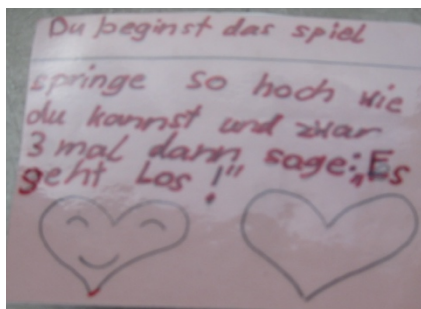 Du beginst das spiel
springe so hoch wie
du kannst und zwar
3 mal dann sage: „Es
geht Los!"